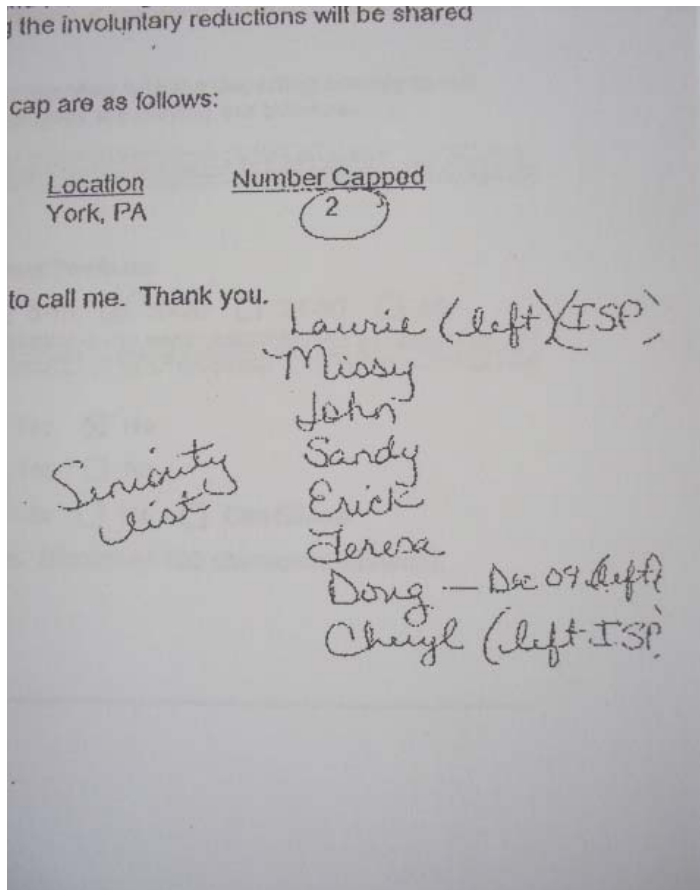 the involuntary reductions will be shared
cap are as follows:
Location Number Capped
York, PA 2
to call me. Thank you.
Laurie (left) (ISP)
Missy
John
Seniority
list
Sandy
Erick
Teresa
Doug — Dec 09 (left)
Cheryl (left ISP